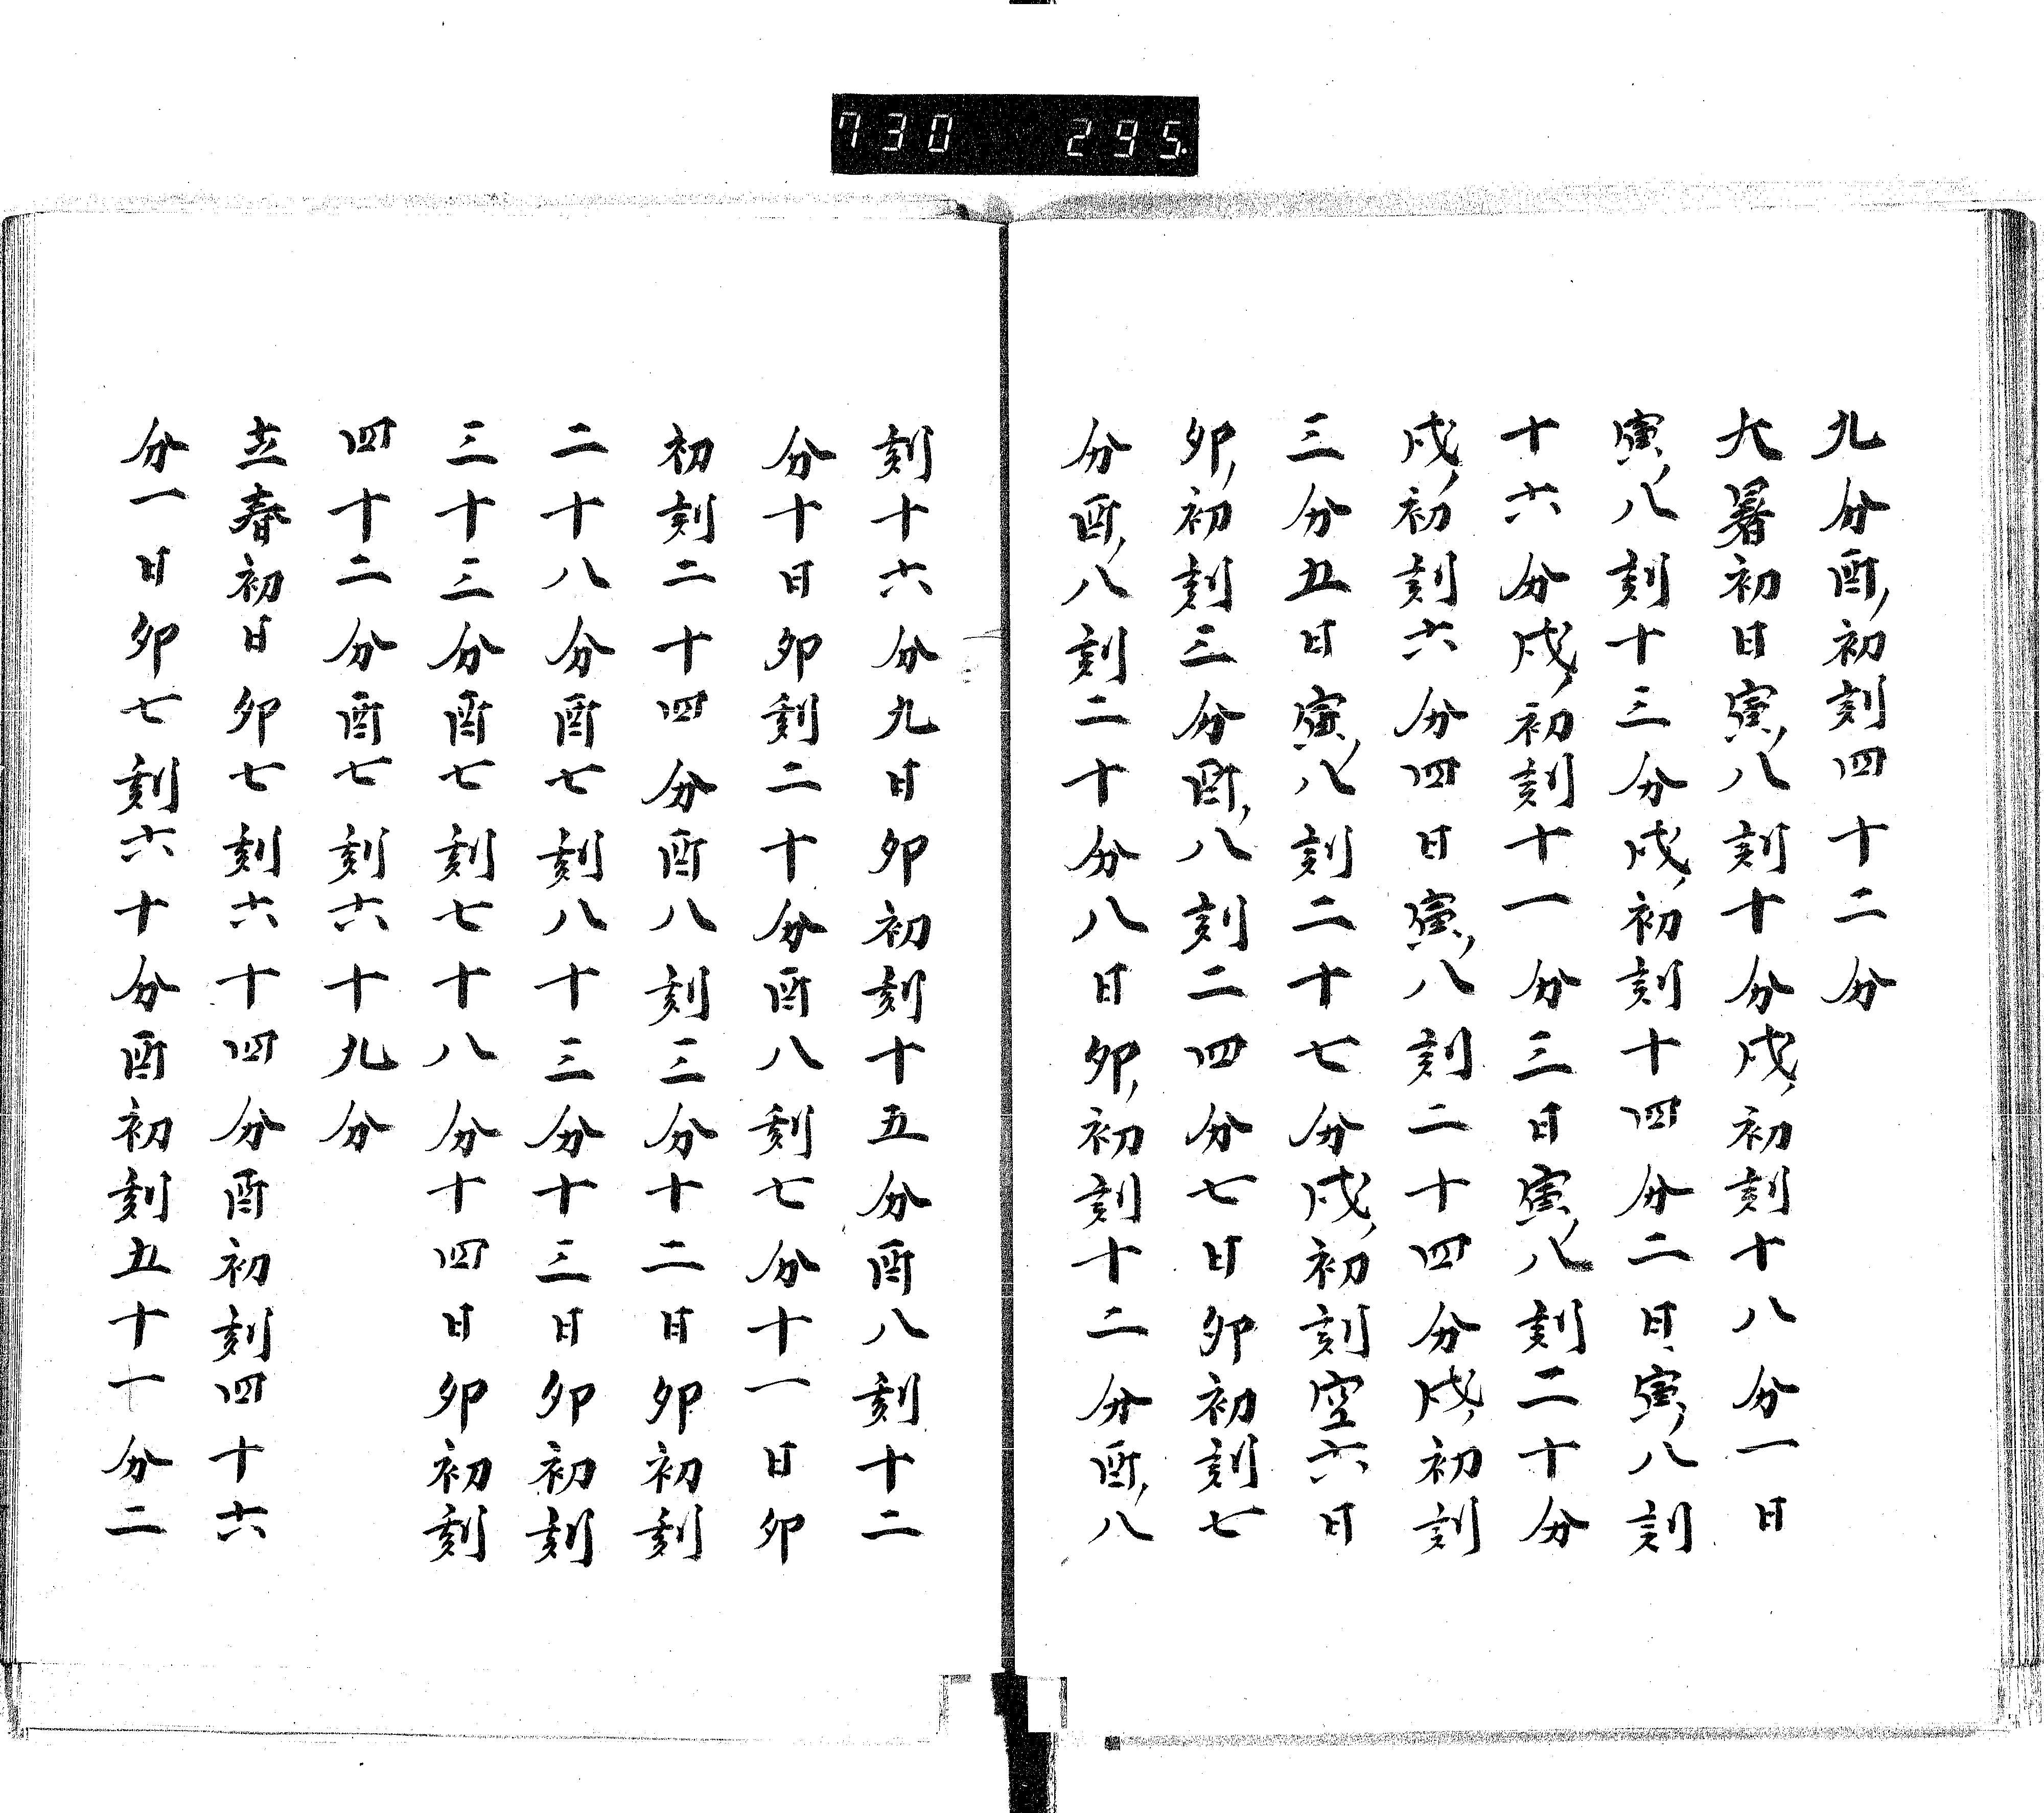 730 295.
九分酉初刻四十二分
大暑初日寅八刻十分戌初刻十八分一日
寅八刻十三分戌初刻十四分二日寅八刻
十六分戌初刻十一分三日寅八刻二十分
戌初刻六分四日寅八刻二十四分戌初刻
三分五日寅八刻二十七分戌初刻空六日
卯初刻三分酉八刻二四分七日卯初刻七
分酉八刻二十分八日卯初刻十二分酉八
刻十六分九日卯初刻十五分酉八刻十二
分十日卯刻二十分酉八刻七分十一日卯
初刻二十四分酉八刻三分十二日卯初刻
二十八分酉七刻八十三分十三日卯初刻
三十三分酉七刻七十八分十四日卯初刻
四十二分酉七刻六十九分
立春初日卯七刻六十四分酉初刻四十六
分一日卯七刻六十分酉初刻五十一分二